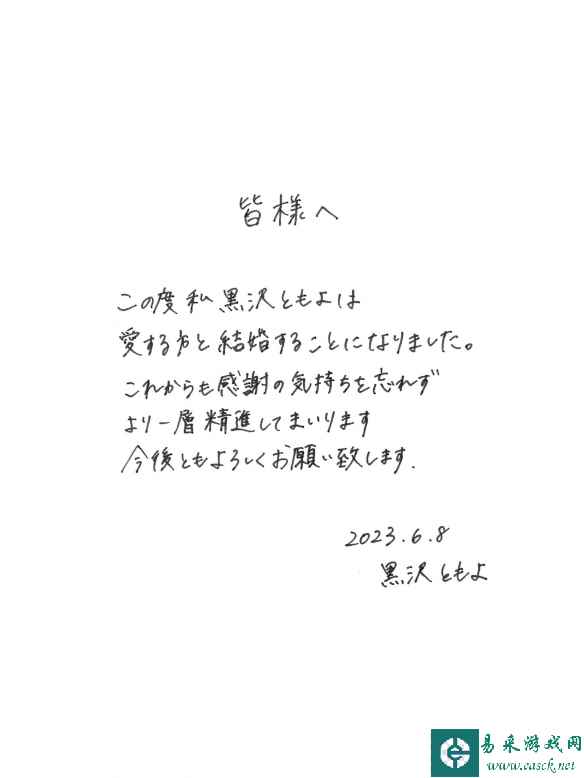 皆様へ
この度 私 黒沢ともよは
愛する方と結婚することになりました。
これからも感謝の気持ちを忘れず
より一層精進してまいります
今後ともよろしくお願い致します.
2023.6.8
黒沢ともよ
易采游戏网
www.easck.net